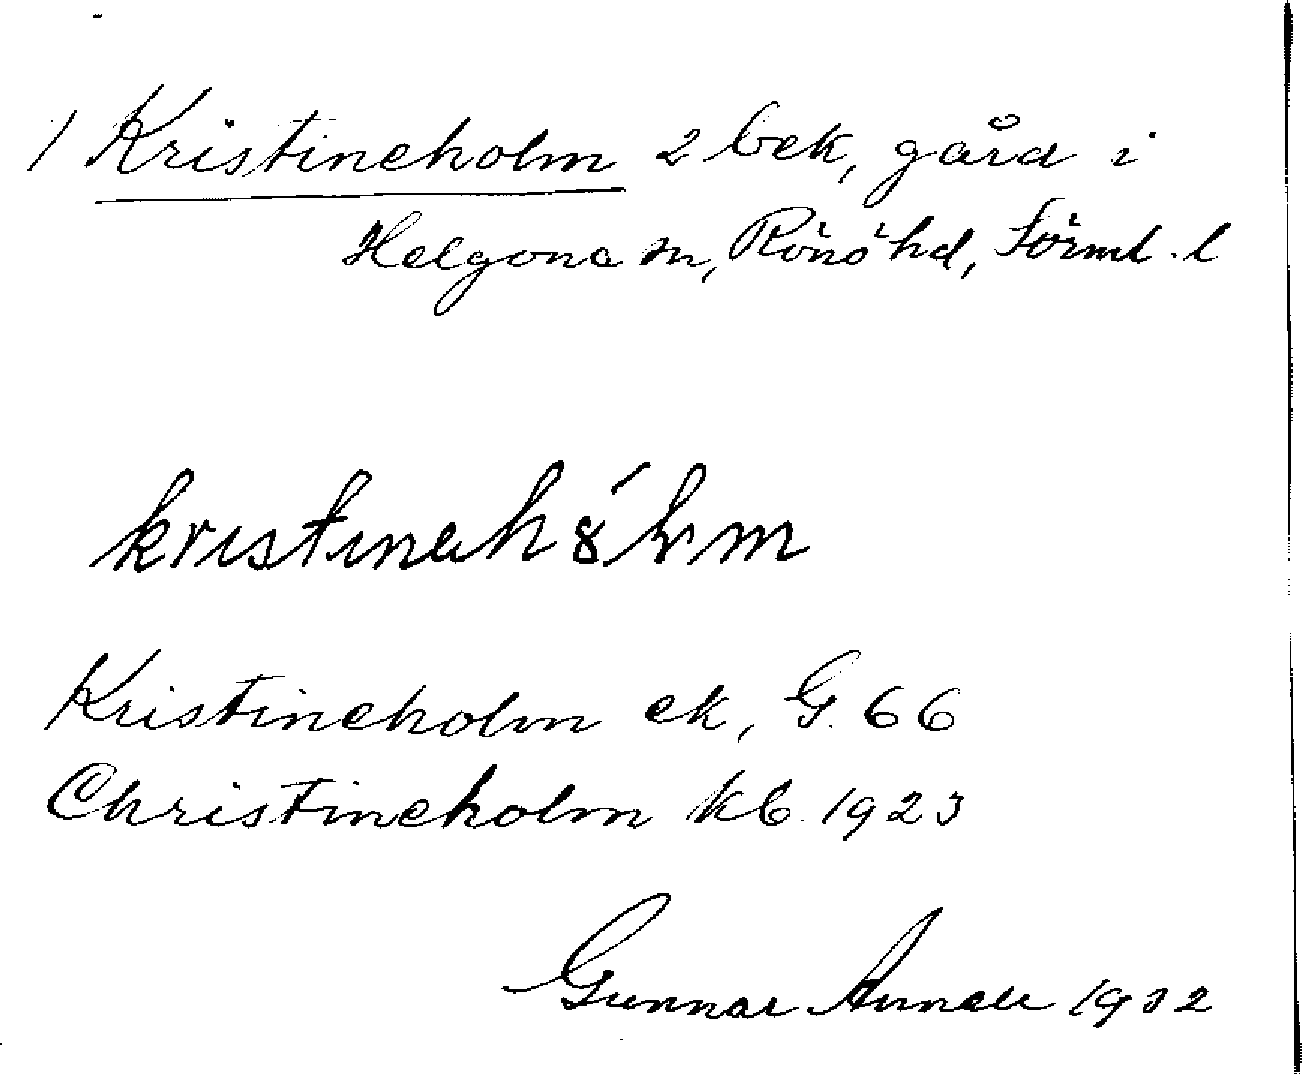 1 Kristineholm 2 bek, gård i
Helgona sn, Rönö hd, Sörml. l
Kristineholm ek, G. 66
Christineholm kb. 1923
Gunnar Annell 1932